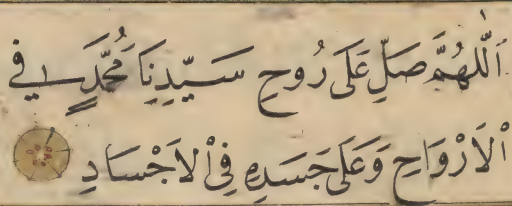 اَللّٰهُمَّ صَلِّ عَلَى رُوحِ سَيِّدِنَا مُحَمَّدٍ فِي
اْلاَرْوَاحِ وَعَلَى جَسَدِهِ فِي اْلاَجْسَادِ